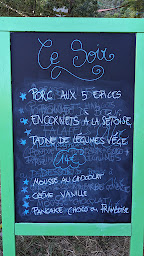 Ce Soir
PORC AUX 5 EPICES
ENCORNETS A LA SETOISE
TAJINE DE LÉGUMES VÉGÉ
14€
MOUSSE AU CHOCOLAT
CRÈME VANILLE
PANCAKE CHOCO OU FRAMBOISE